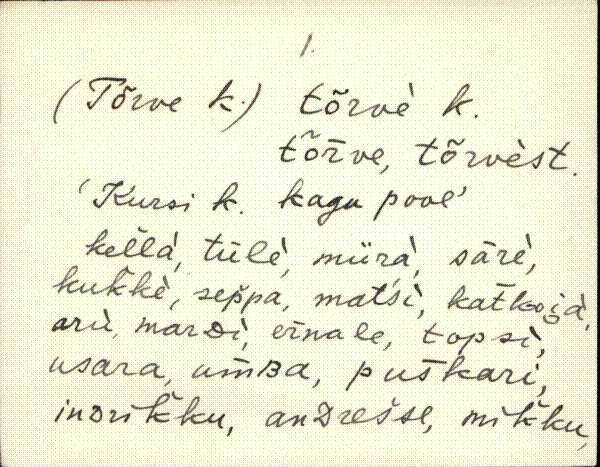 1.
(Tõrve k.) tõrvè k.
tȭrve, tõrvèst.
'Kursi k. kagu pool'
kellà, tūlè, mürà, sārè,
kukkè, seppa, matśì, katkojà,
arù, marᴅì, eīnale, topsì,
usara, umʙa, puskari,
inᴅrikku, anᴅresse, mikku,